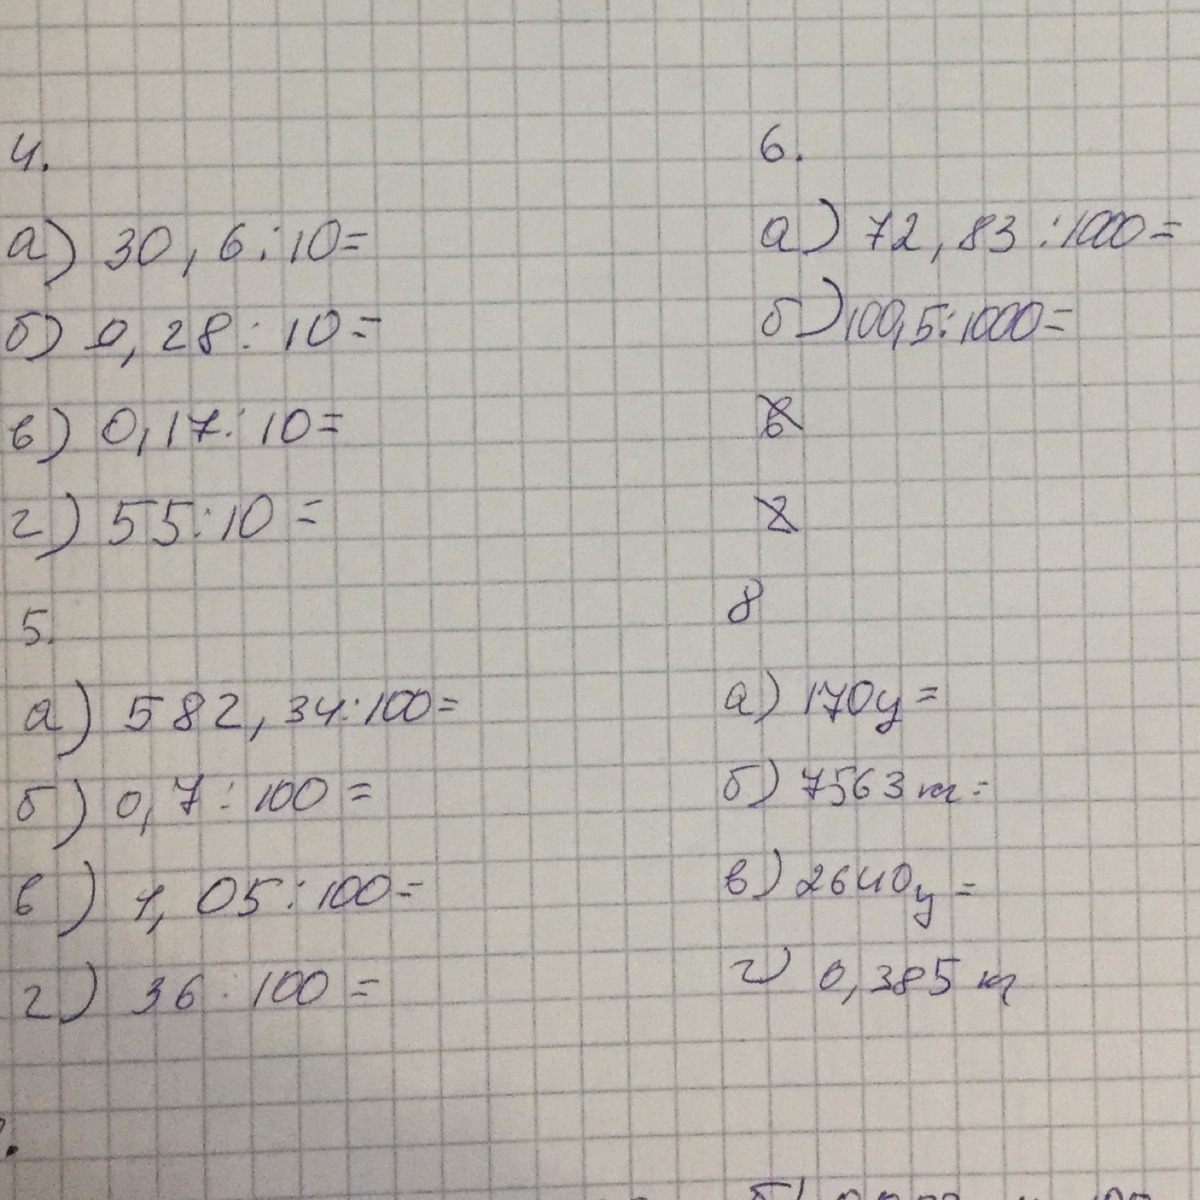 4.
а) 30,6:10=
б) 0,28:10=
в) 0,17:10=
г) 55:10=
5.
а) 582,34:100=
б) 0,7:100=
в) 1,05:100=
г) 36:100=
6.
а) 72,83:1000=
б) 100,5:1000=
8
а) 170ц=
б) 7563кг=
в) 2640ц=
г) 0,385 кг